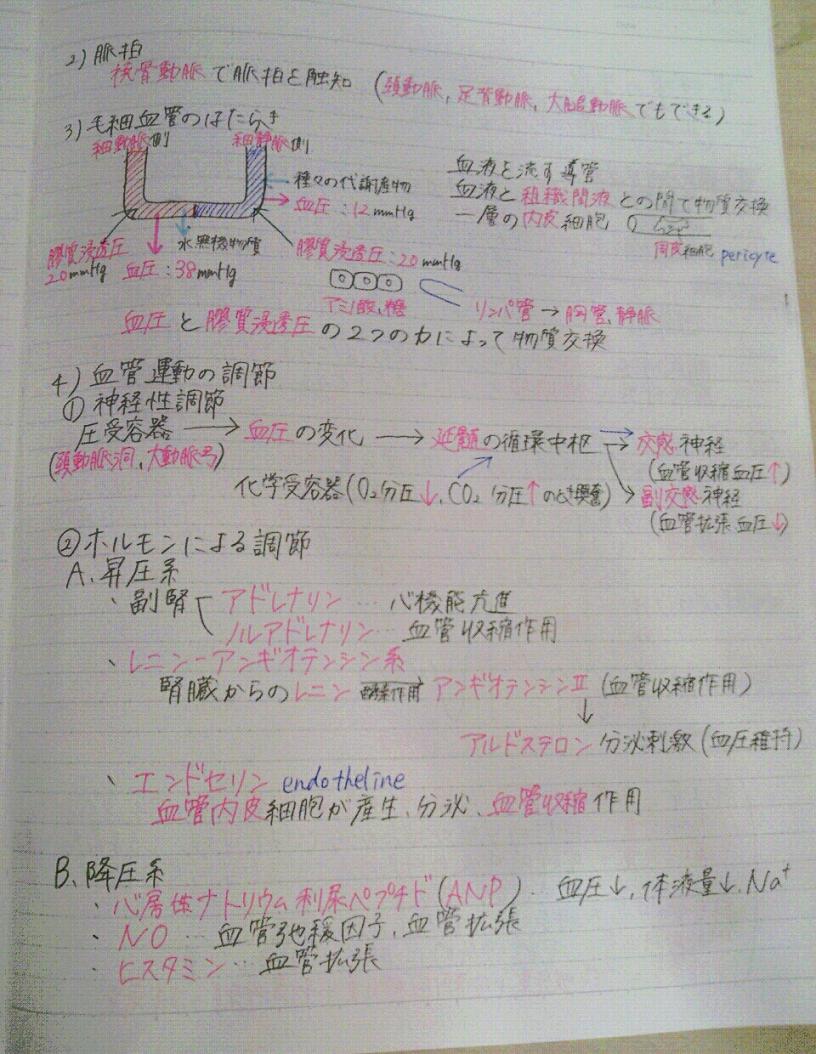 2) 脈拍
橈骨動脈で脈拍を触知 (頸動脈, 足背動脈, 大腿動脈でもできる)
3) 毛細血管のはたらき
細動脈側 細静脈側
種々の代謝産物
血圧:12mmHg
水 無機物質
膠質浸透圧 20mmHg
血圧:38mmHg
膠質浸透圧:20mmHg
アミノ酸、糖
血液を流す導管
血液と組織間液との間で物質交換
一層の内皮細胞
周皮細胞 pericyte
リンパ管→胸管、静脈
血圧と膠質浸透圧の2つの力によって物質交換
4) 血管運動の調節
① 神経性調節
圧受容器 → 血圧の変化 → 延髄の循環中枢 → 交感神経
(頸動脈洞、大動脈弓)
(血管収縮 血圧↑)
化学受容器 (O₂分圧↓, CO₂分圧↑のとき興奮)
→ 副交感神経
(血管拡張 血圧↓)
② ホルモンによる調節
A. 昇圧系
・副腎 アドレナリン … 心機能亢進
ノルアドレナリン … 血管収縮作用
・レニン-アンギオテンシン系
腎臓からのレニン → 酵素作用 アンギオテンシンⅡ (血管収縮作用)
↓
アルドステロン分泌刺激 (血圧維持)
、エンドセリン endotheline
血管内皮細胞が産生、分泌、血管収縮作用
B. 降圧系
・心房性ナトリウム利尿ペプチド (ANP) … 血圧↓, 体液量↓, Na⁺
・NO … 血管弛緩因子, 血管拡張
・ヒスタミン … 血管拡張